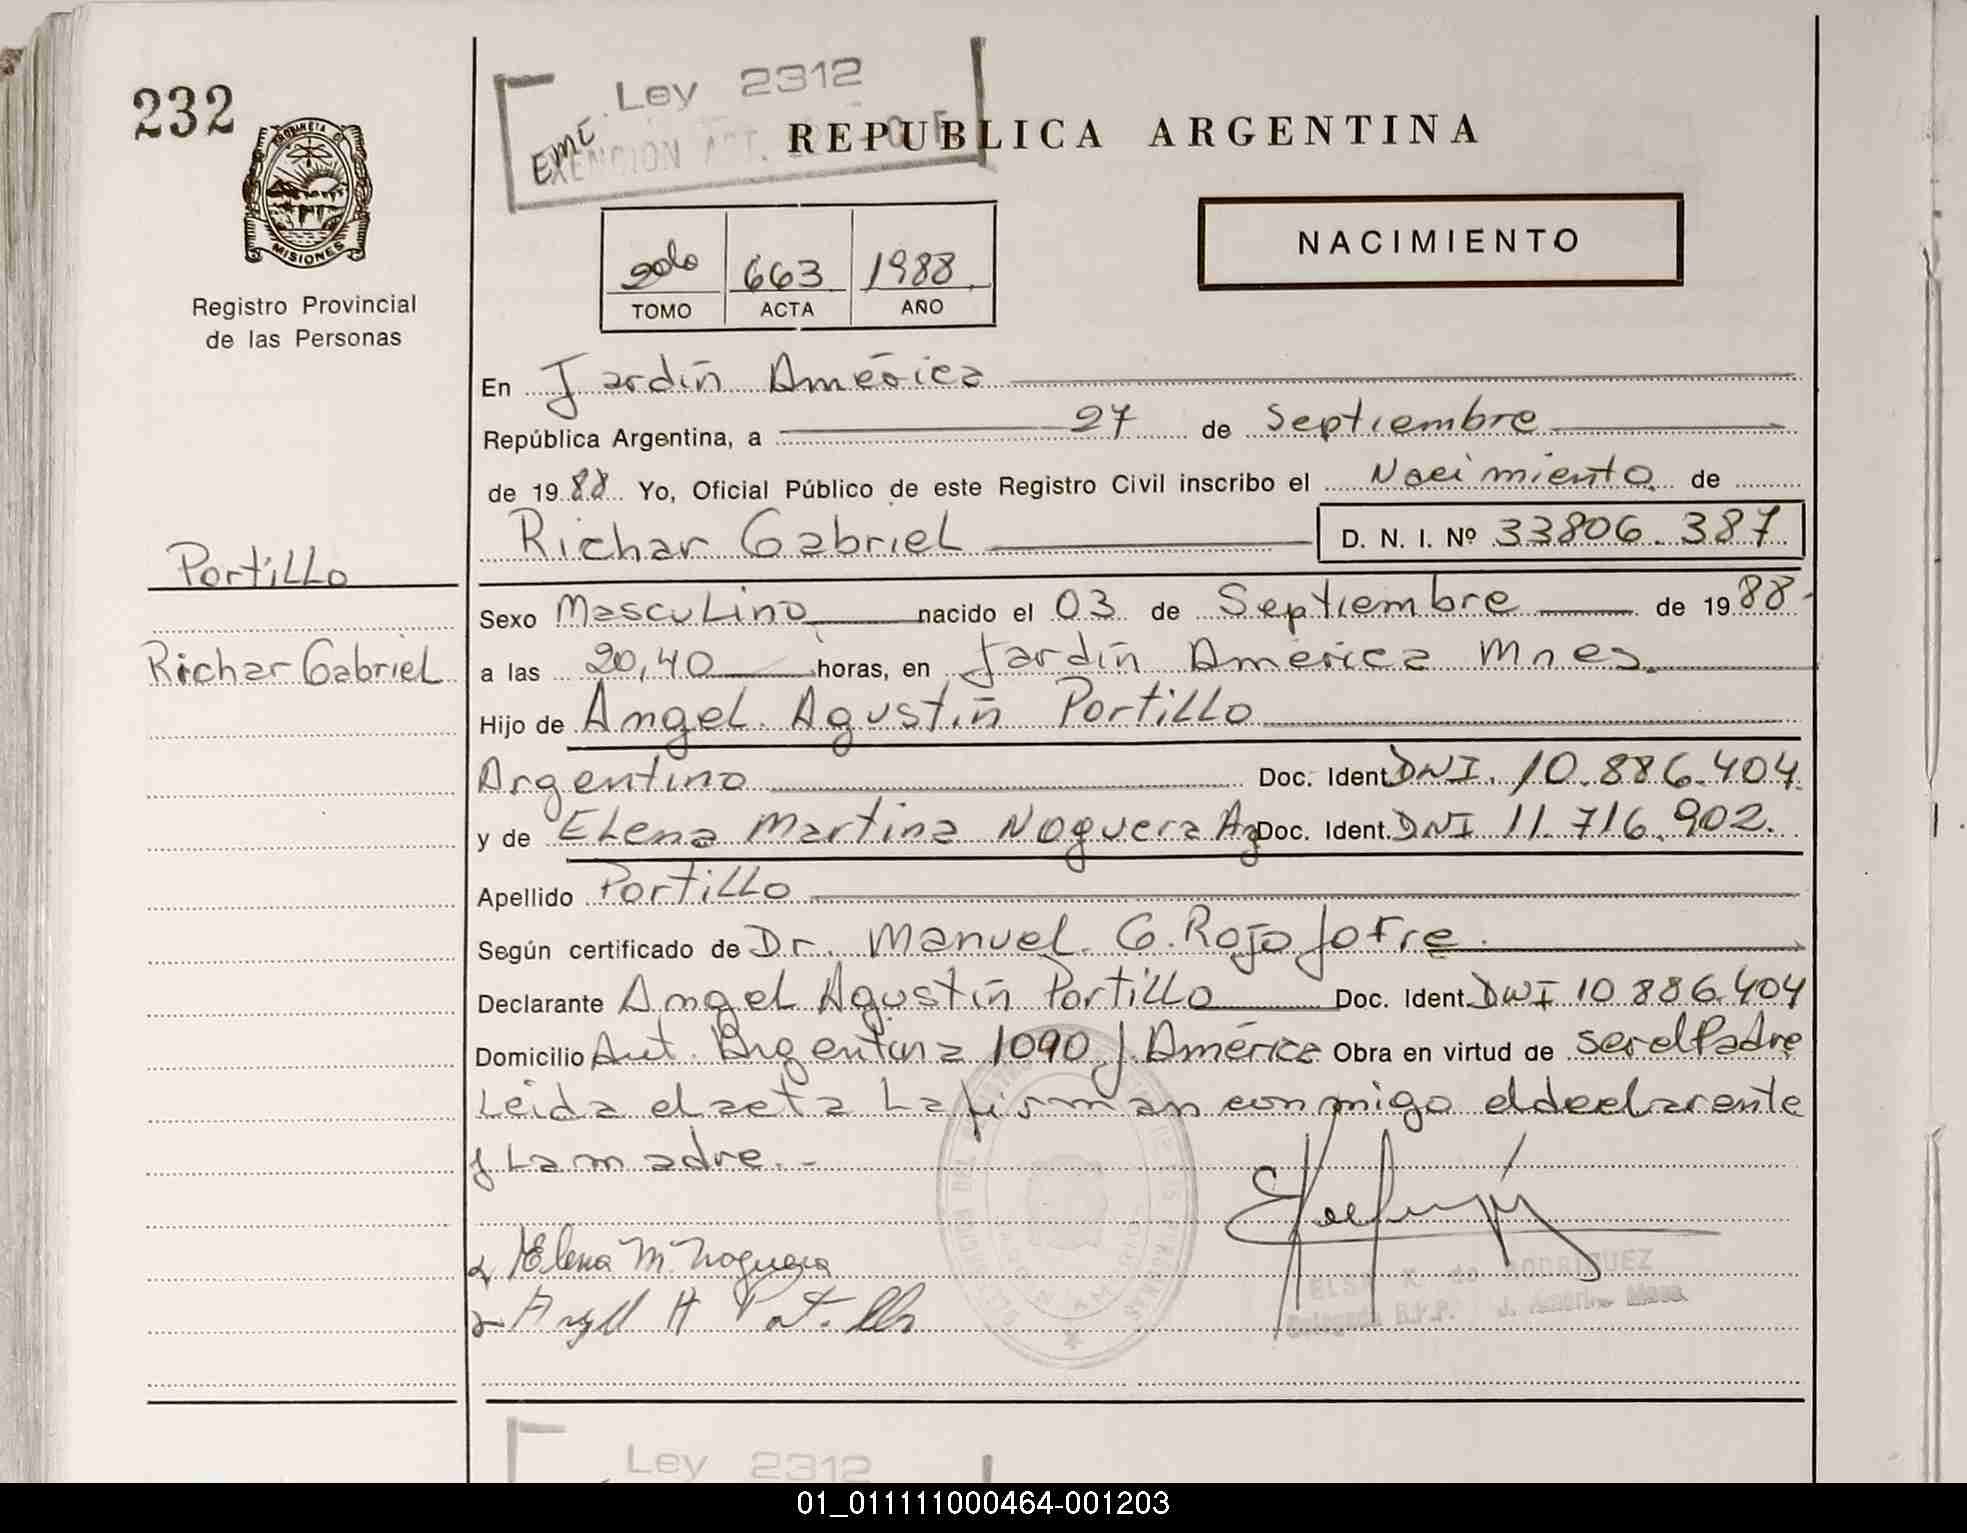 232
PROVINCIA DE
MISIONES
Registro Provincial
de las Personas
Ley 2312
REPUBLICA ARGENTINA
NACIMIENTO
solo 663 1988
TOMO ACTA AÑO
En Jardín América
República Argentina, a 27 de Septiembre
de 1988 Yo, Oficial Público de este Registro Civil inscribo el Nacimiento de
Richar Gabriel D. N. I. Nº 33806.387
Portillo
Richar Gabriel
Sexo Masculino nacido el 03 de Septiembre de 1988
a las 20,40 horas, en Jardín América Mnes.
Hijo de Angel Agustín Portillo
Argentino Doc. Ident. DNI. 10.886.404
y de Elena Martina Noguera Ag Doc. Ident. DNI 11.716.902.
Apellido Portillo
Según certificado de Dr. Manuel G. Rojo Jofre.
Declarante Angel Agustín Portillo Doc. Ident. DNI 10 886.404
Domicilio Aut. Argentina 1090 J. América Obra en virtud de ser el Padre
Leida el acta La firman conmigo el declarante
y La madre.-
Elena M. Noguera
Angel A Portillo
ELSA K. de RODRIGUEZ
Ley 2312
01_011111000464-001203